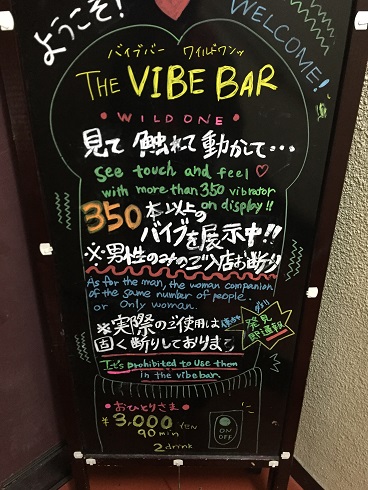 ようこそ!
WELCOME!
バイブバー ワイルドワンッ
THE VIBE BAR
WILD ONE
見て 触れて 動かして…
see touch and feel ♡
with more than 350 vibrator
on display!!
350本以上の
バイブを展示中!!
※男性のみのご入店お断り
As for the man, the woman companion
of the same number of people.
or Only woman.
※実際のご使用は
固く断りしております
発見
即通報
It's prohibited to use them
in the vibebar.
おひとりさま
¥3,000 YEN
90min
2drink
ON
OFF